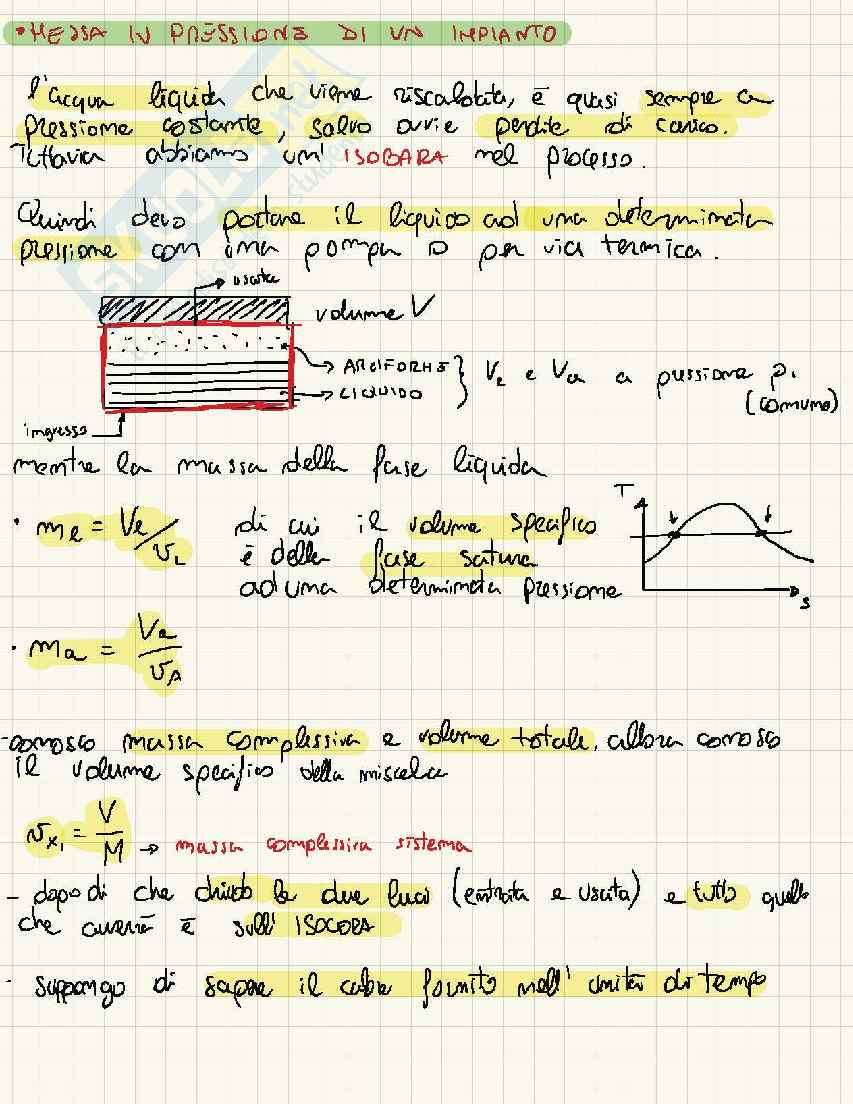 • MESSA IN PRESSIONE DI UN IMPIANTO
l'acqua liquida che viene riscaldata, è quasi sempre a
pressione costante, salvo ovvie perdite di carico.
Tuttavia abbiamo un' ISOBARA nel processo.
Quindi devo portare il liquido ad una determinata
pressione con una pompa o per via termica.
uscita
volume V
AERIFORME
LIQUIDO
Ve e Va a pressione p1
(comune)
ingresso
mentre la massa della fase liquida
• me = Ve/vL
di cui il volume specifico
è della fase satura
ad una determinata pressione
T
s
• ma = Va/vA
-conosco massa complessiva e volume totale, allora conosco
il volume specifico della miscela
vx1 = V/M → massa complessiva sistema
- dopo di che chiudo le due luci (entrata e uscita) e tutto quello
che avviene è sull' ISOCORA
- suppongo di sapere il calore fornito nell' unità di tempo